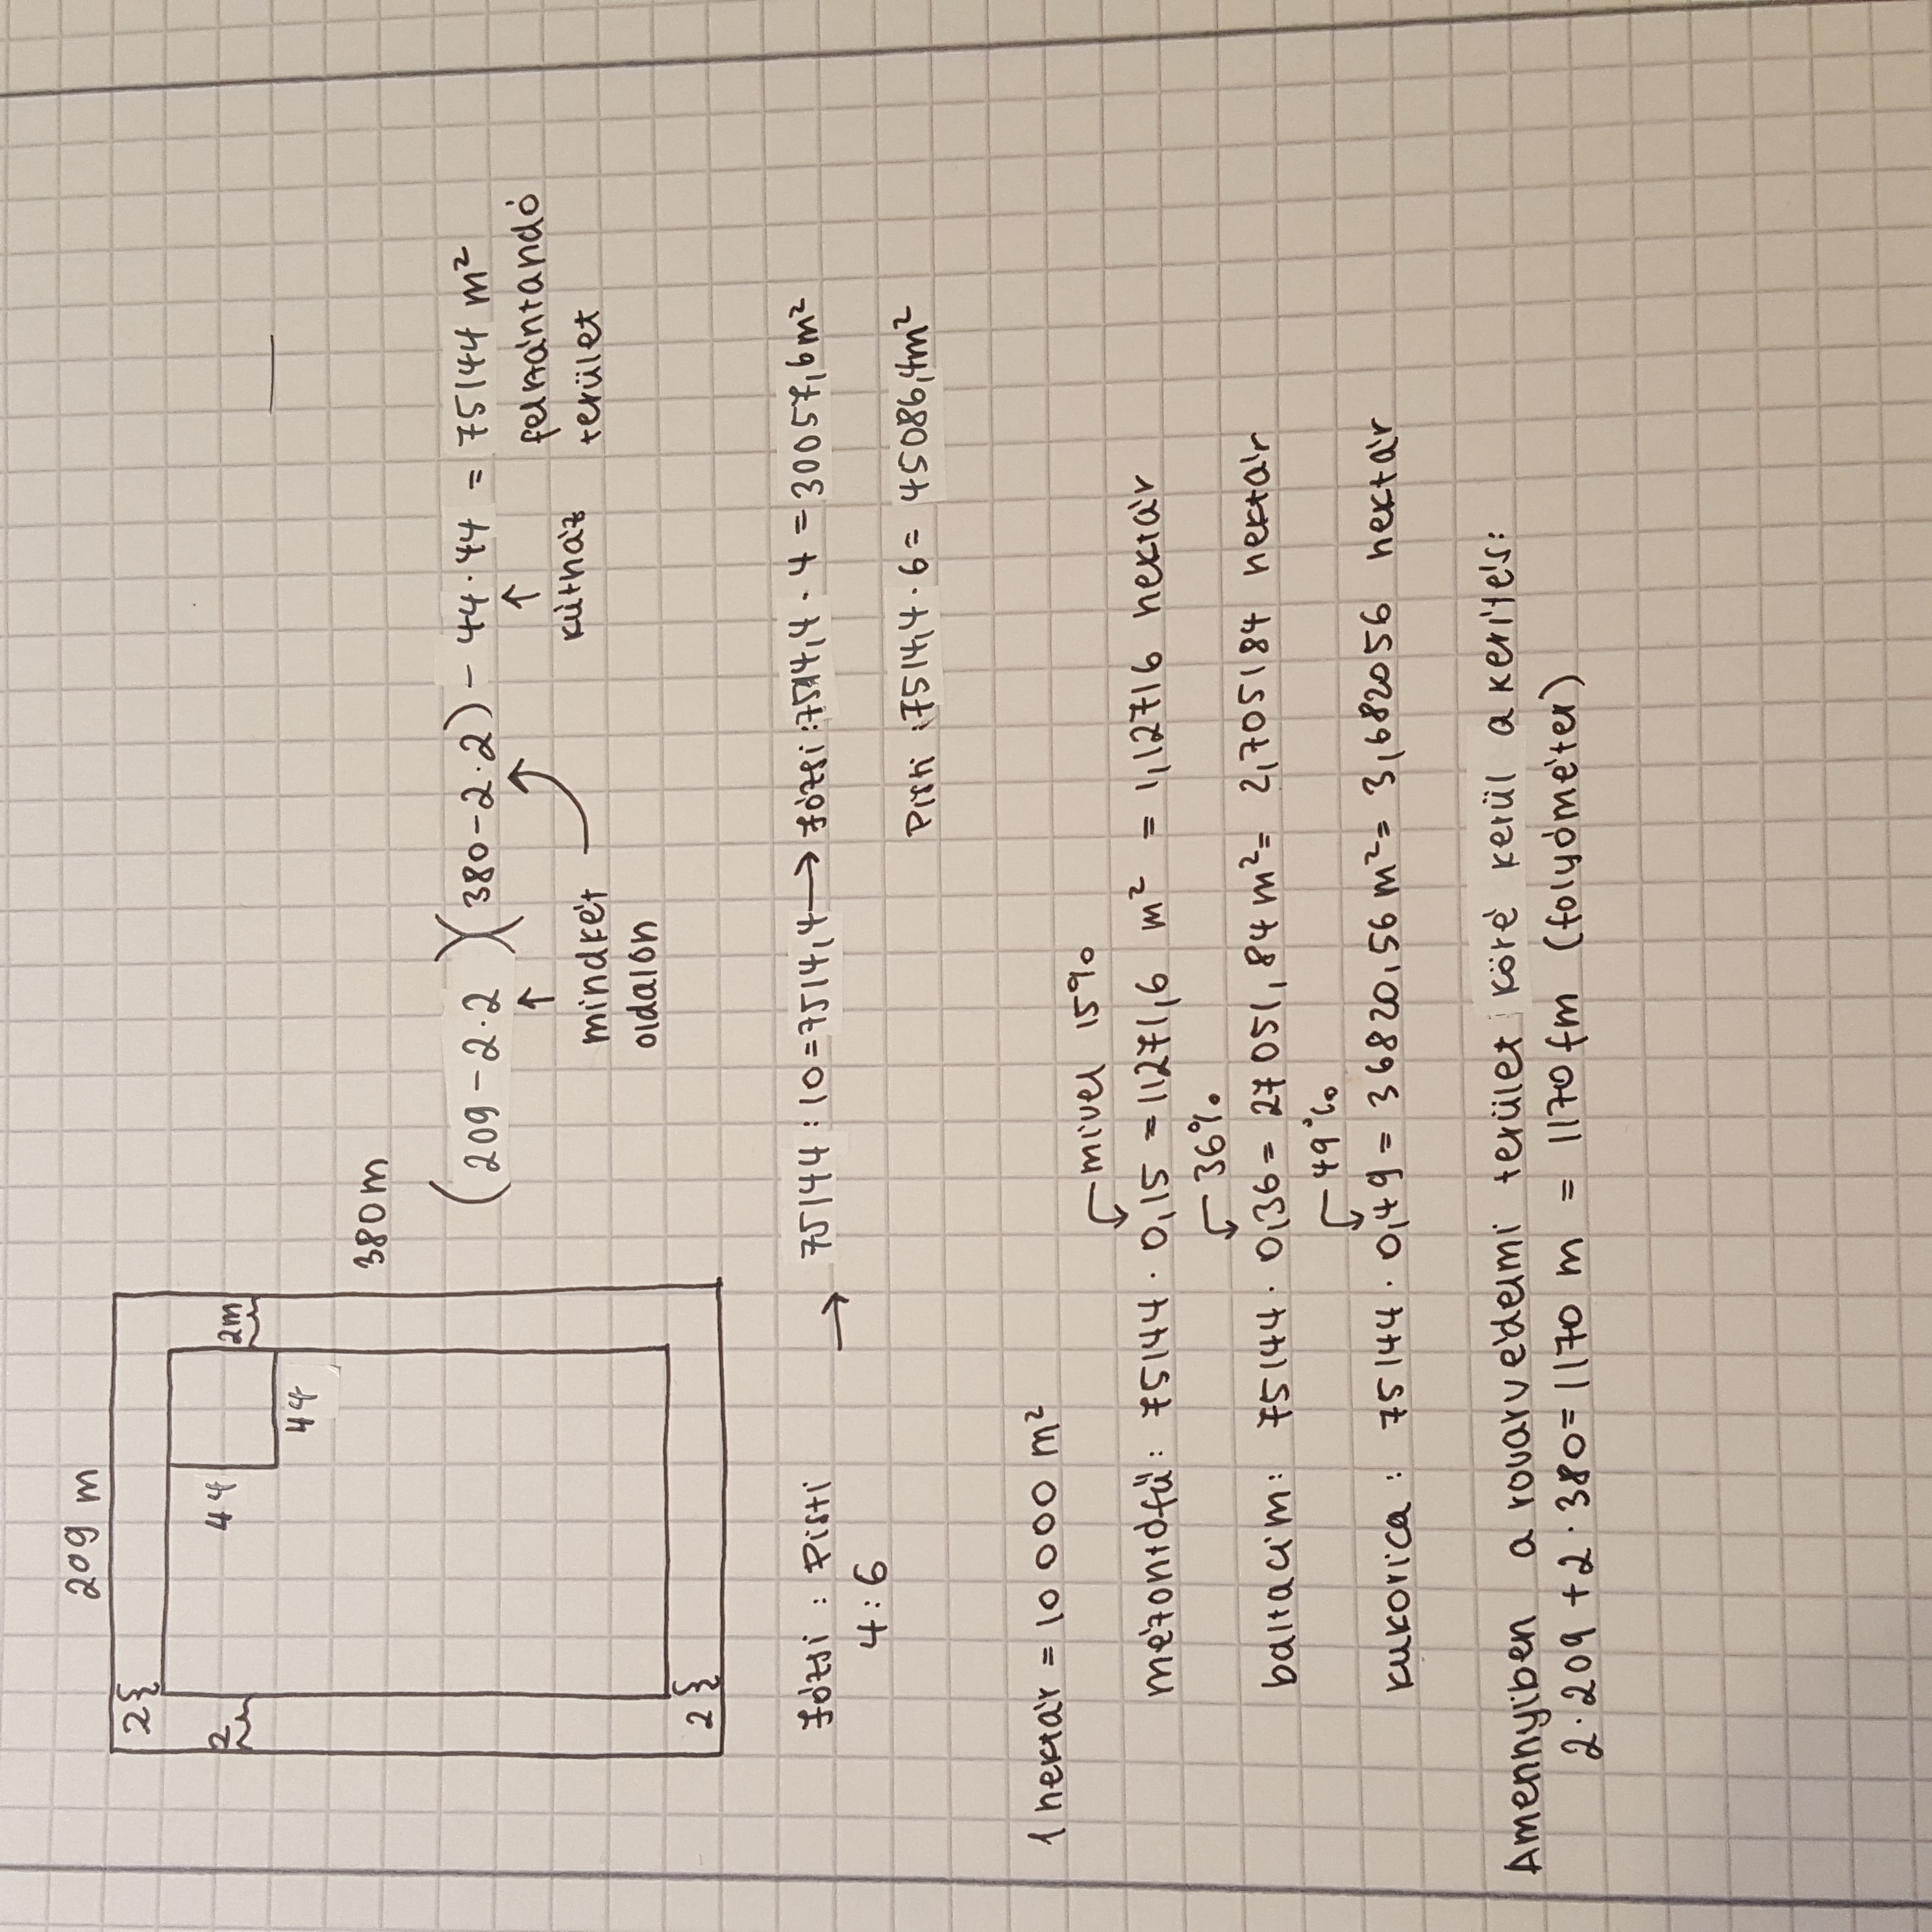 209 m
2
2
2m
44
44
2
380m
(209-2·2)(380-2·2) - 44·44 = 75144 m²
↑ ↑ felszántandó
mindkét kútház terület
oldalon
Józsi : Pisti → 75144 : 10 = 7514,4 → Józsi: 7514,4 · 4 = 30057,6 m²
4 : 6 Pisti: 7514,4 · 6 = 45086,4 m²
1 hektár = 10 000 m²
mivel 15%
mézontófű: 75144 · 0,15 = 11271,6 m² = 1,12716 hektár
36%
baltacim: 75144 · 0,36 = 27051,84 m² = 2,705184 hektár
49%
kukorica: 75144 · 0,49 = 36820,56 m² = 3,682056 hektár
Amennyiben a rovarvédelmi terület köré kerül a kerítés:
2·209 + 2·380 = 1170 m = 1170 fm (folyóméter)